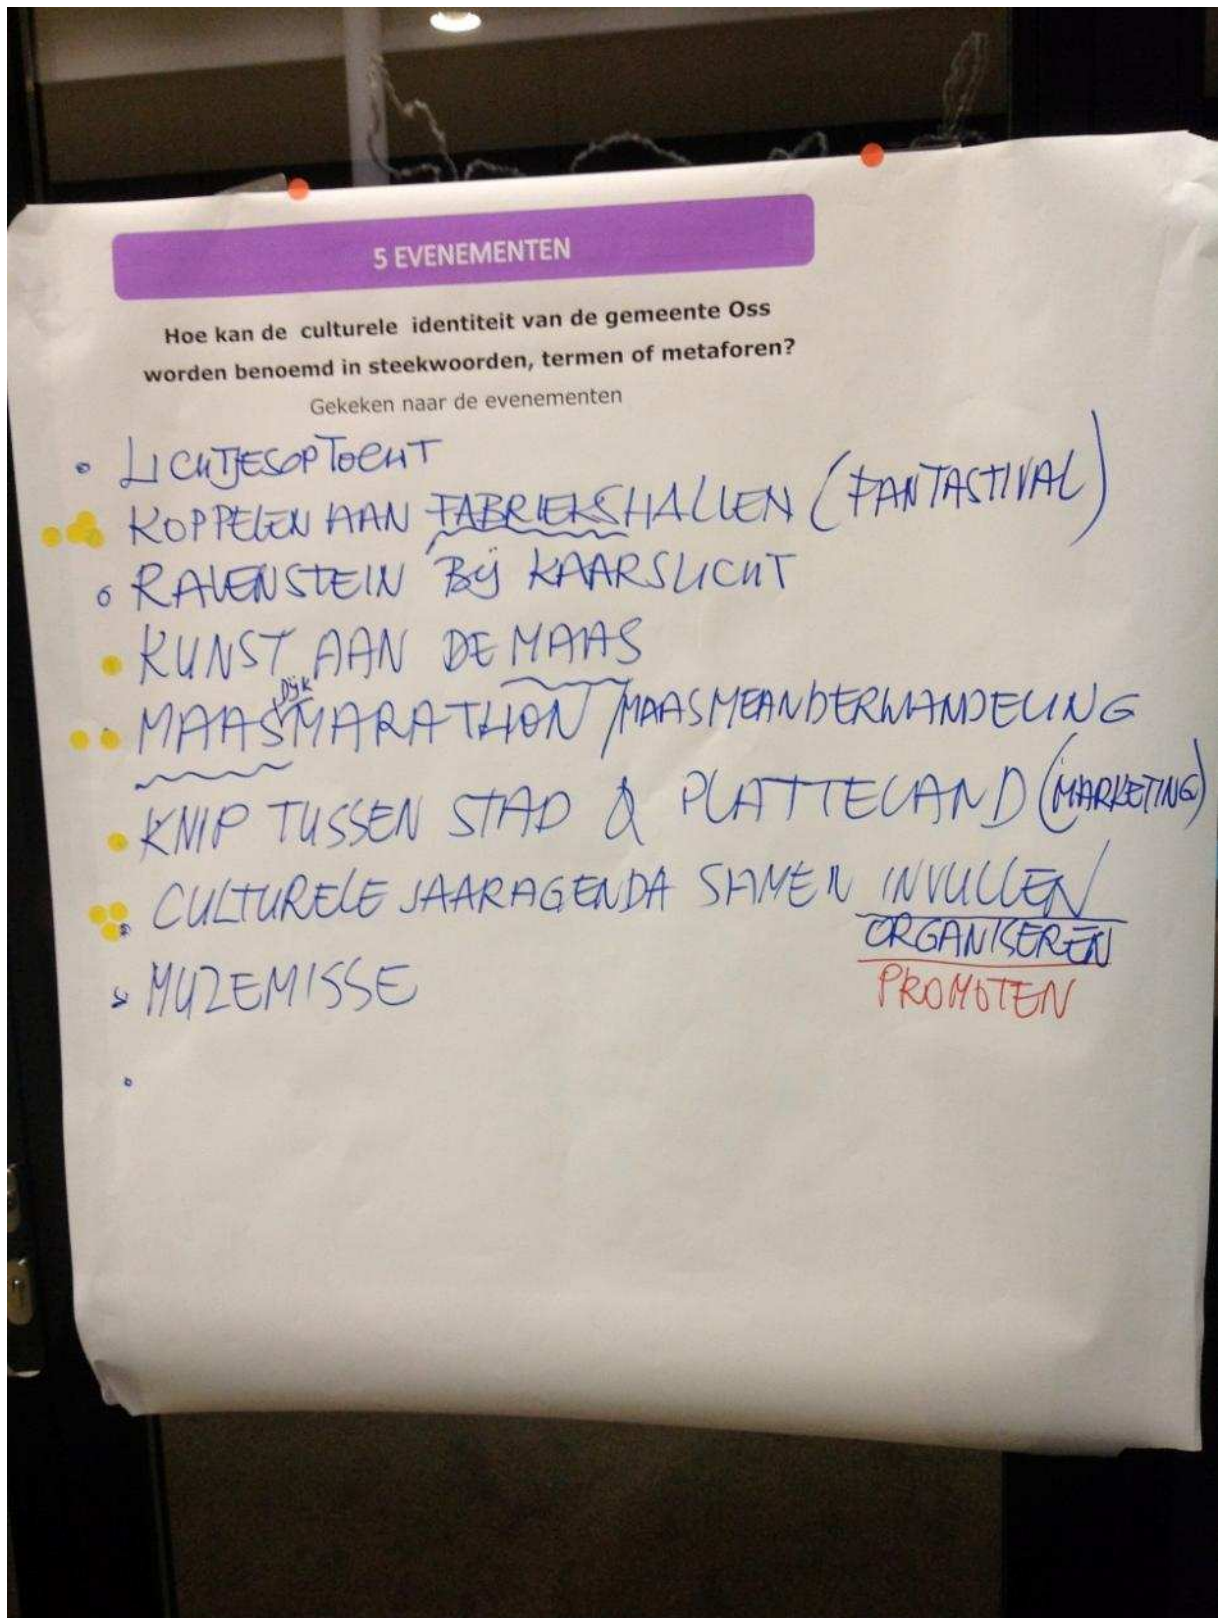 5 EVENEMENTEN
Hoe kan de culturele identiteit van de gemeente Oss
worden benoemd in steekwoorden, termen of metaforen?
Gekeken naar de evenementen
• LICHTJESOPTOCHT
KOPPELEN AAN FABRIEKSHALLEN (FANTASTIVAL)
• RAVENSTEIN BIJ KAARSLICHT
• KUNST AAN DE MAAS
MAASDijkMARATHON / MAASMEANDERWANDELING
• KNIP TUSSEN STAD & PLATTELAND (MARKETING)
• CULTURELE JAARAGENDA SAMEN INVULLEN
ORGANISEREN
PROMOTEN
• MUZEMISSE
•